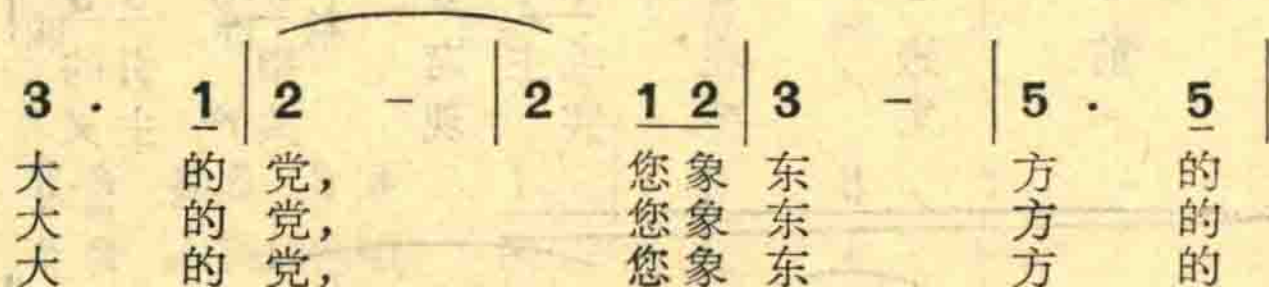 3 · 1 | 2 - | 2 1 2 | 3 - | 5 · 5 |
大 的 党， 您 象 东 方 的
大 的 党， 您 象 东 方 的
大 的 党， 您 象 东 方 的